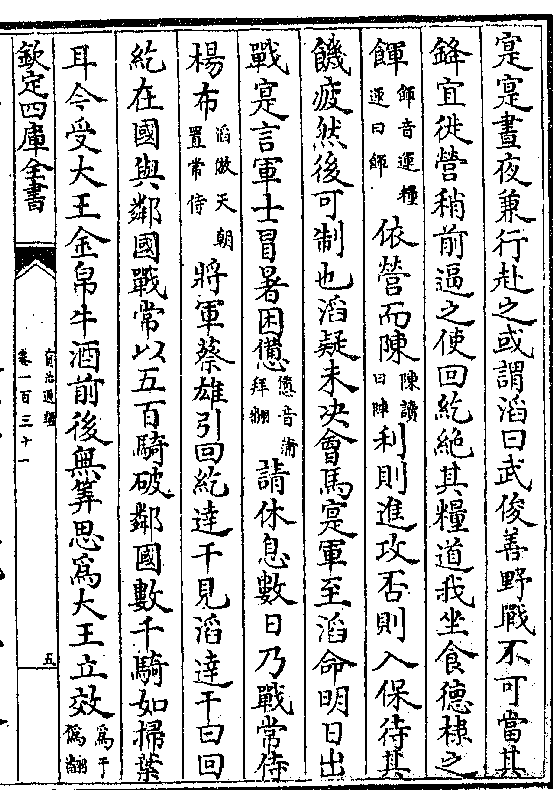 寔寔晝夜兼行赴之或謂滔曰武俊善野戰不可當其
鋒宜徙營稍前逼之使回紇絶其糧道我坐食德棣之
餫餫音運糧運曰餫依營而陳陳讀曰陣利則進攻否則入保待其
饑疲然後可制也滔疑未决會馬寔軍至滔命明日出
戰寔言軍士冒暑困憊憊音蒲拜翻請休息數日乃戰常侍
楊布滔倣天朝置常侍將軍蔡雄引回紇達干見滔達干曰回
紇在國與鄰國戰常以五百騎破鄰國數千騎如掃葉
耳今受大王金帛牛酒前後無筭思爲大王立效爲于僞翻
欽定四庫全書
資治通鑑
卷一百三十一
五